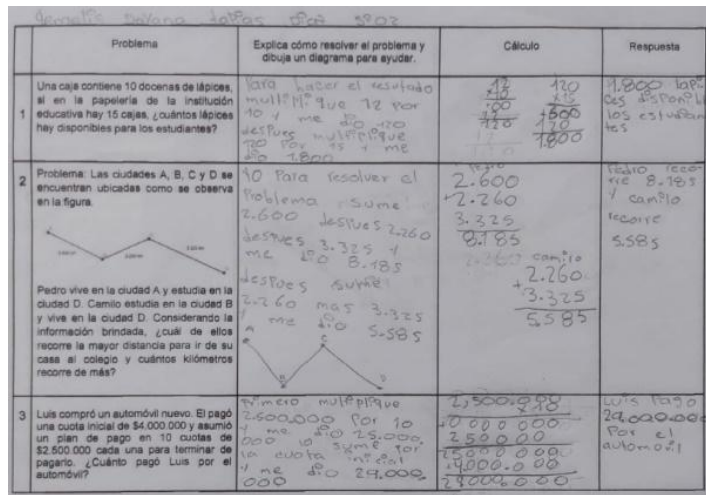 Dayana
Problema
Explica cómo resolver el problema y
dibuja un diagrama para ayudar.
Cálculo
Respuesta
1
Una caja contiene 10 docenas de lápices,
si en la papelería de la institución
educativa hay 15 cajas, ¿cuántos lápices
hay disponibles para los estudiantes?
Para hacer el resultado
multiplique 12 por
10 y me dio 120
despues multiplique
120 por 15 y me
dio 1.800
12
×10
00
12
120
120
×15
600
120
1800
1.800 lapi
ces disponibl
los estudian
tes
2
Problema: Las ciudades A, B, C y D se
encuentran ubicadas como se observa
en la figura.
Pedro vive en la ciudad A y estudia en la
ciudad D. Camilo estudia en la ciudad B
y vive en la ciudad D. Considerando la
información brindada, ¿cuál de ellos
recorre la mayor distancia para ir de su
casa al colegio y cuántos kilómetros
recorre de más?
Yo Para resolver el
Problema sume
2.600 despues 2.260
despues 3.325 y
me dio 8.185
despues sume
2.260 mas 3.325
y me dio 5.585
A
B
C
D
Pedro
2.600
+2.260
3.325
8.185
camilo
2.260
+3.325
5585
Pedro reco-
rre 8.185
y camilo
recorre
5.585
3
Luis compró un automóvil nuevo. El pagó
una cuota inicial de $4.000.000 y asumió
un plan de pago en 10 cuotas de
$2.500.000 cada una para terminar de
pagarlo. ¿Cuánto pagó Luis por el
automóvil?
Primero multiplique
2.500.000 Por 10
y me dio 25.000.
000 lo sume por
la cuota inicial
y me dio 29.000.
000
2,500.000
×10
0000000
2500000
25000000
+4000.000
29000000
Luis Pago
29.000.000
Por el
automovil